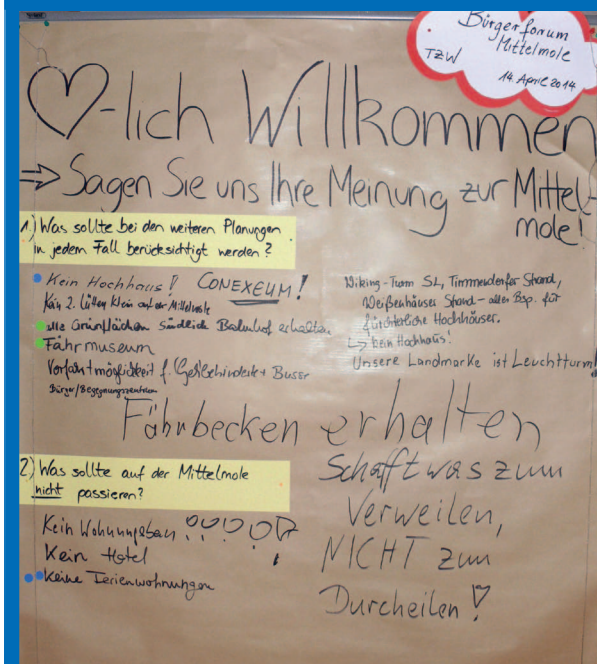 Bürgerforum
Mittelmole
TZW
14. April 2014
♡-lich Willkommen
⇒ Sagen Sie uns Ihre Meinung zur Mittel-
mole!
1.) Was sollte bei den weiteren Planungen
in jedem Fall berücksichtigt werden?
Kein Hochhaus! CONEXEUM!
Kein 2. Lütten Klein auf der Mittelmole
alle Grünflächen südlich Bahnhof erhalten
Fährmuseum
Vorfahrtmöglichkeit f. Gehbehinderte + Busse
Bürger/Begegnungszentrum
Wiking-Turm SL, Timmendorfer Strand,
Weißenhäuser Strand – alles Bsp. für
fürchterliche Hochhäuser.
↳ kein Hochhaus!
Unsere Landmarke ist Leuchtturm!
Fährbecken erhalten
2.) Was sollte auf der Mittelmole
nicht passieren?
Kein Wohnungsbau !!!!!
Kein Hotel
Keine Ferienwohnungen
Schafft was zum
Verweilen,
NICHT zum
Durcheilen!